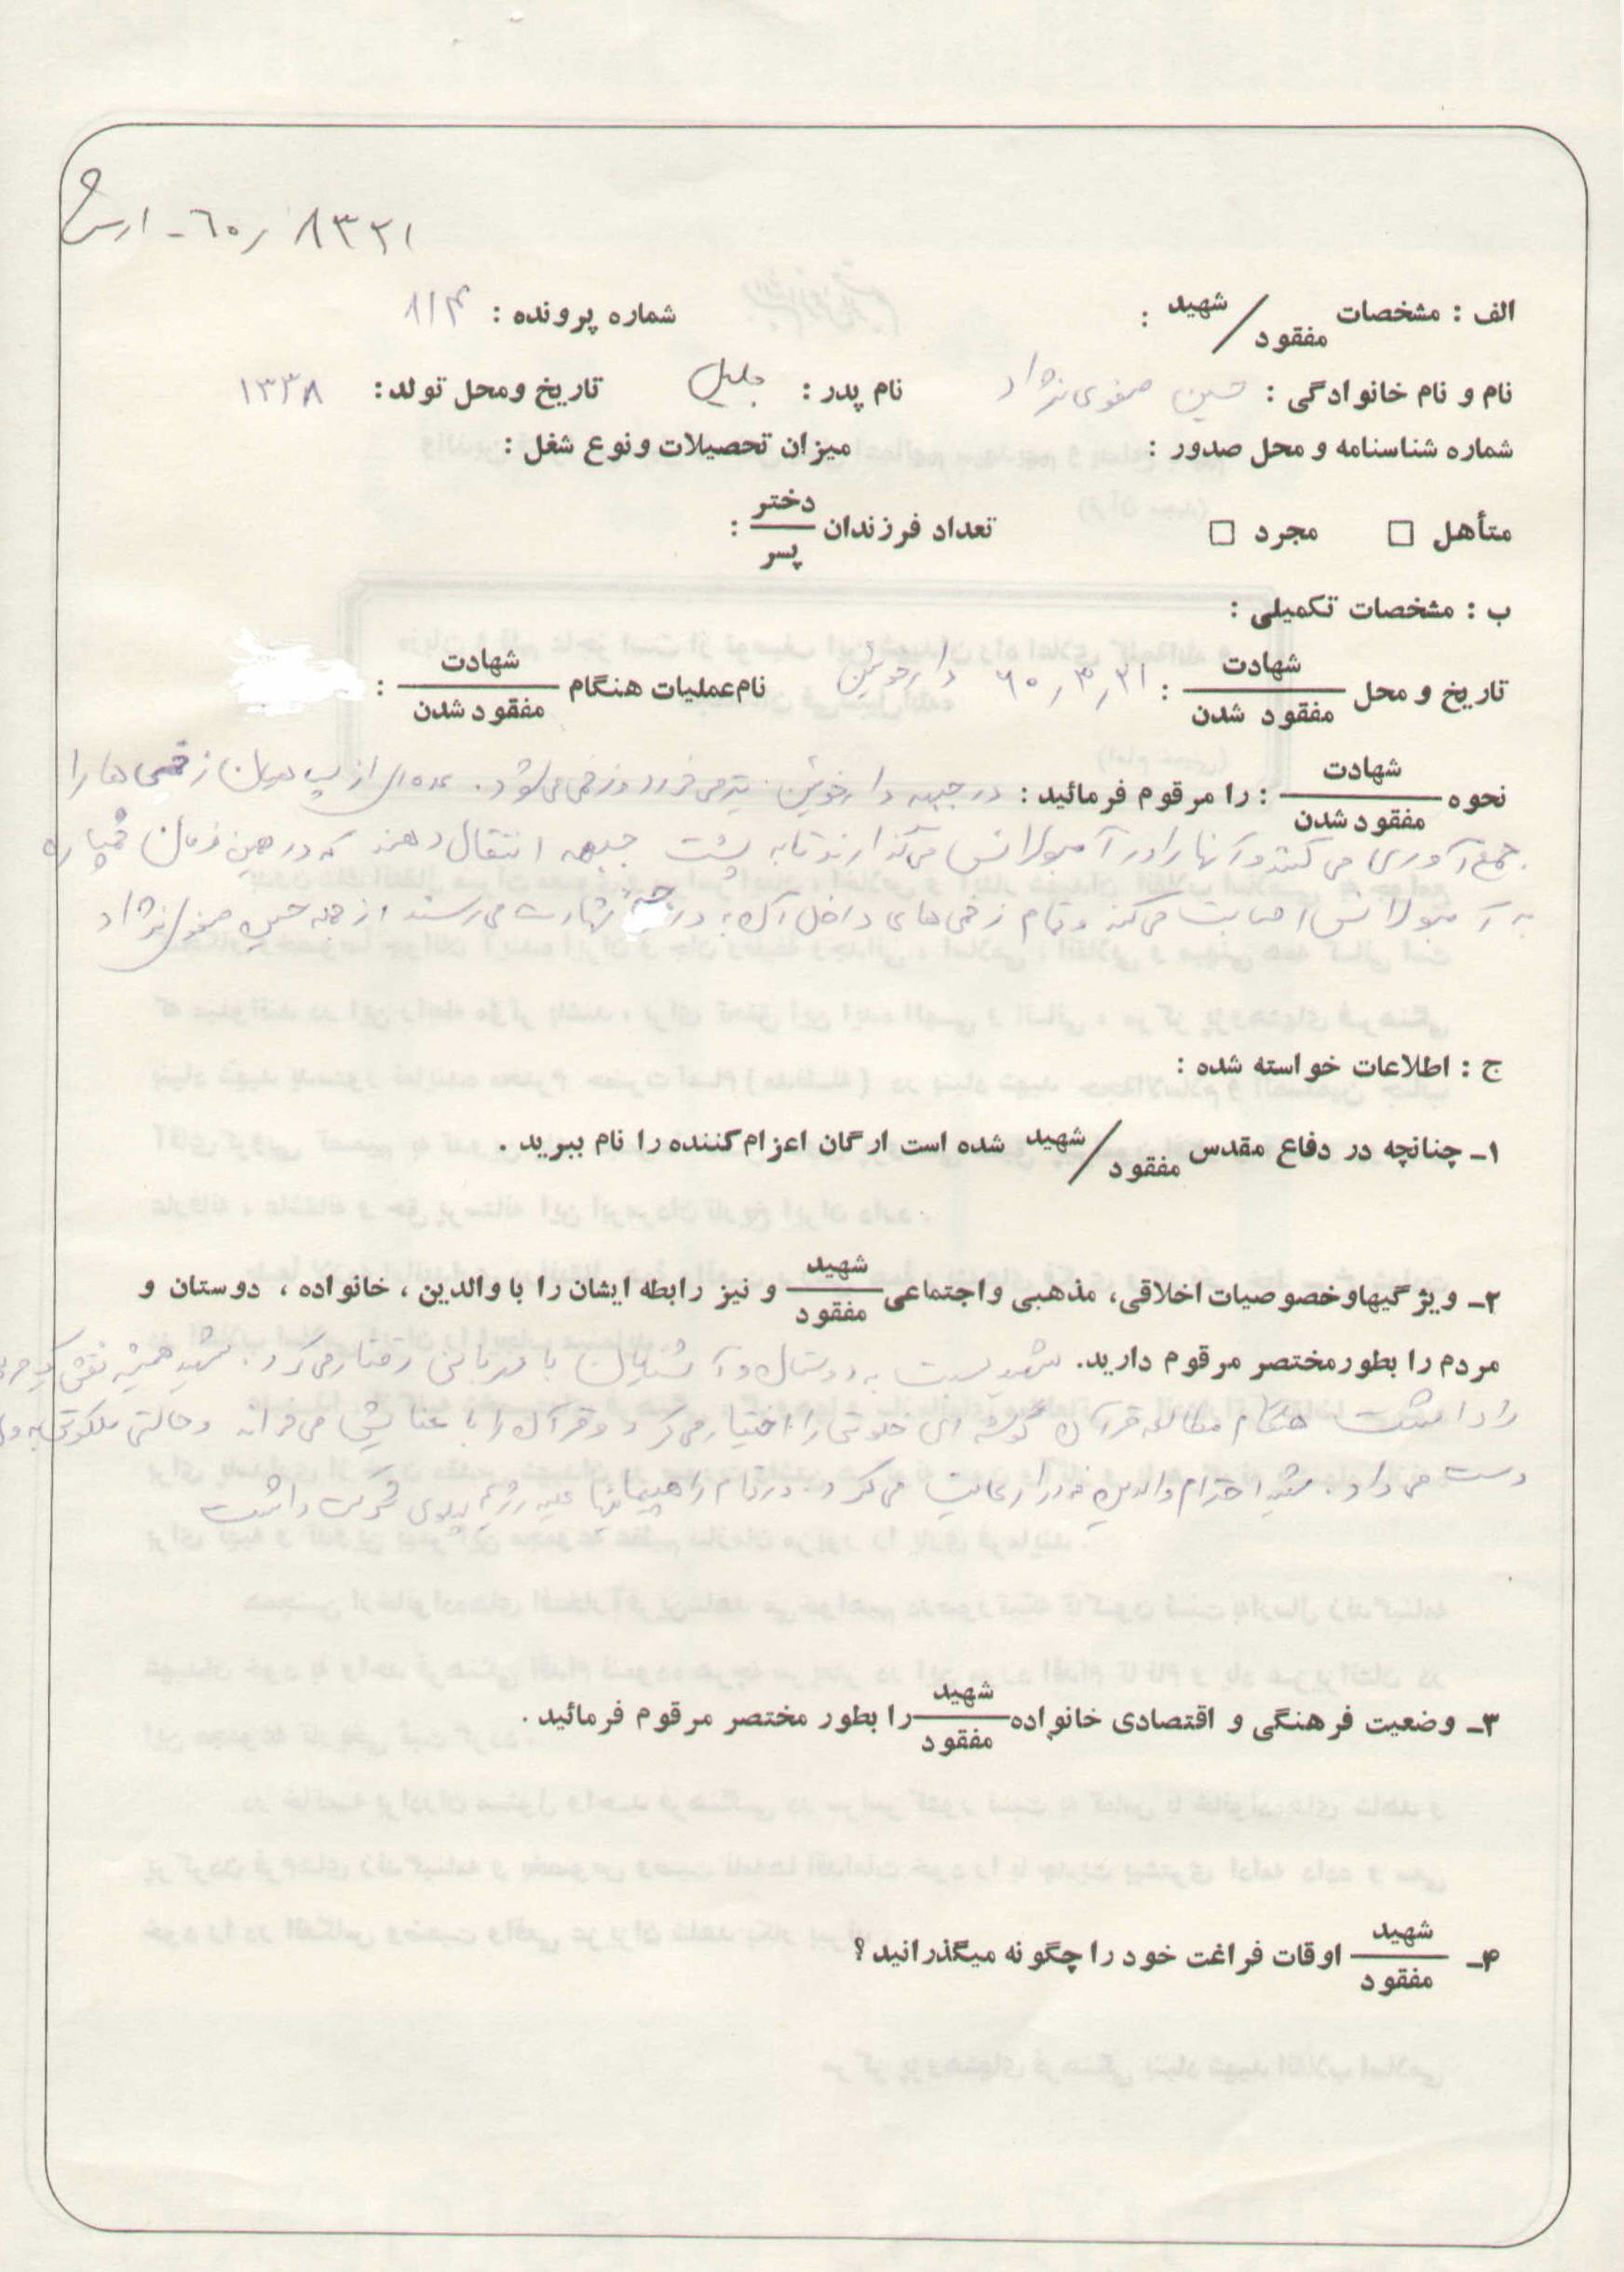 ۶۰/۸۳۲۱ -
الف : مشخصات شهید / مفقود : شماره پرونده : ۸۱۴
نام و نام خانوادگی : حسین صفوی نژاد نام پدر : جلیل تاریخ ومحل تولد: ۱۳۳۸
شماره شناسنامه و محل صدور : میزان تحصیلات ونوع شغل :
متأهل □ مجرد □ تعداد فرزندان دختر / پسر :
ب : مشخصات تکمیلی :
تاریخ و محل شهادت / مفقود شدن : ۶۰/۳/۳۱ دارخوئین نام عملیات هنگام شهادت / مفقود شدن :
نحوه شهادت / مفقود شدن : را مرقوم فرمائید : در جبهه دارخوئین تیر می خورد و زخمی می شود. عده ای از زخمی ها را
جمع آوری می کنند و آنها را در آمبولانس می گذارند تا به پشت جبهه انتقال دهند که در همین زمان خمپاره
به آمبولانس اصابت می کند و تمام زخمی های داخل آن به درجه شهادت می رسند از جمله حسین صفوی نژاد
ج : اطلاعات خواسته شده :
۱ـ چنانچه در دفاع مقدس شهید / مفقود شده است ارگان اعزام کننده را نام ببرید .
۲ـ ویژگیهاوخصوصیات اخلاقی، مذهبی واجتماعی شهید / مفقود و نیز رابطه ایشان را با والدین ، خانواده ، دوستان و
مردم را بطورمختصر مرقوم دارید. شهید نسبت به دوستان و آشنایان با مهربانی رفتار می کرد. شهید همیشه نقش
را داشت هنگام مطالعه قرآن گوشه ای خلوتی را اختیار می کرد و قرآن را با می خواند و حالتی ملکوتی به او
دست می داد. شهید احترام والدین خود را رعایت می کرد. در تمام راهپیمائیها علیه رژیم پهلوی شرکت داشت
۳ـ وضعیت فرهنگی و اقتصادی خانواده شهید / مفقود را بطور مختصر مرقوم فرمائید .
۴ـ شهید / مفقود اوقات فراغت خود را چگونه میگذرانید ؟